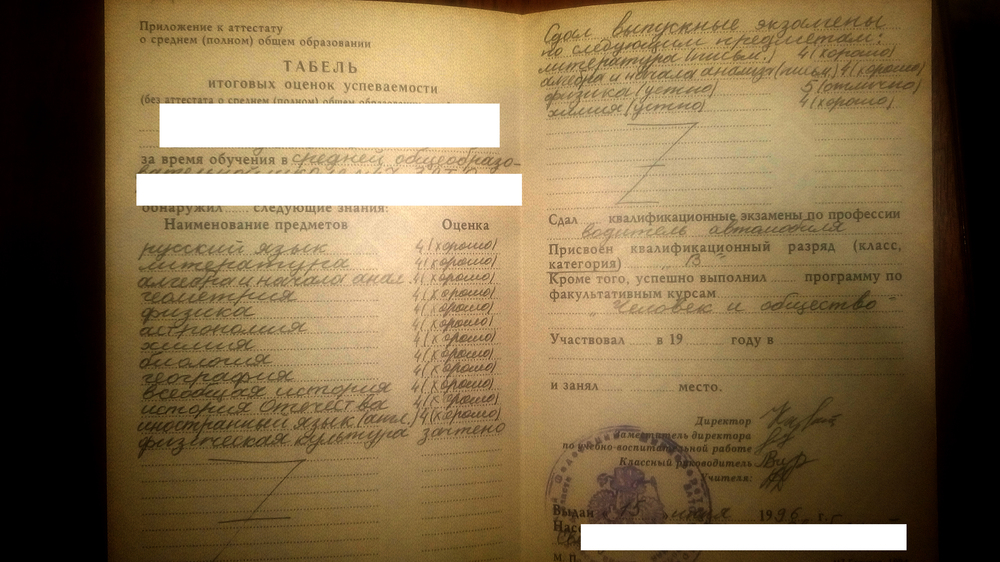 Приложение к аттестату
о среднем (полном) общем образовании
ТАБЕЛЬ
итоговых оценок успеваемости
(без аттестата о среднем (полном) общем
за время обучения в средней общеобразо-
обнаружил следующие знания:
Наименование предметов Оценка
русский язык 4 (хорошо)
литература 4 (хорошо)
алгебра и начала анал. 4 (хорошо)
геометрия 4 (хорошо)
физика 4 (хорошо)
астрономия 4 (хорошо)
химия 4 (хорошо)
биология 4 (хорошо)
география 4 (хорошо)
всеобщая история 4 (хорошо)
история Отечества 4 (хорошо)
иностранный язык (англ.) 4 (хорошо)
физическая культура зачтено
Сдал выпускные экзамены
по следующим предметам:
литература (письм.) 4 (хорошо)
алгебра и начала анализа (письм) 4 (хорошо)
физика (устно) 5 (отлично)
химия (устно) 4 (хорошо)
Сдал квалификационные экзамены по профессии
водитель автомобиля
Присвоен квалификационный разряд (класс,
категория) "В"
Кроме того, успешно выполнил программу по
факультативным курсам
"Человек и общество"
Участвовал в 19 году в
и занял место.
Директор
Заместитель директора
по учебно-воспитательной работе
Классный руководитель
Учителя:
Выдан 15 июня 1996 г.
М. П.